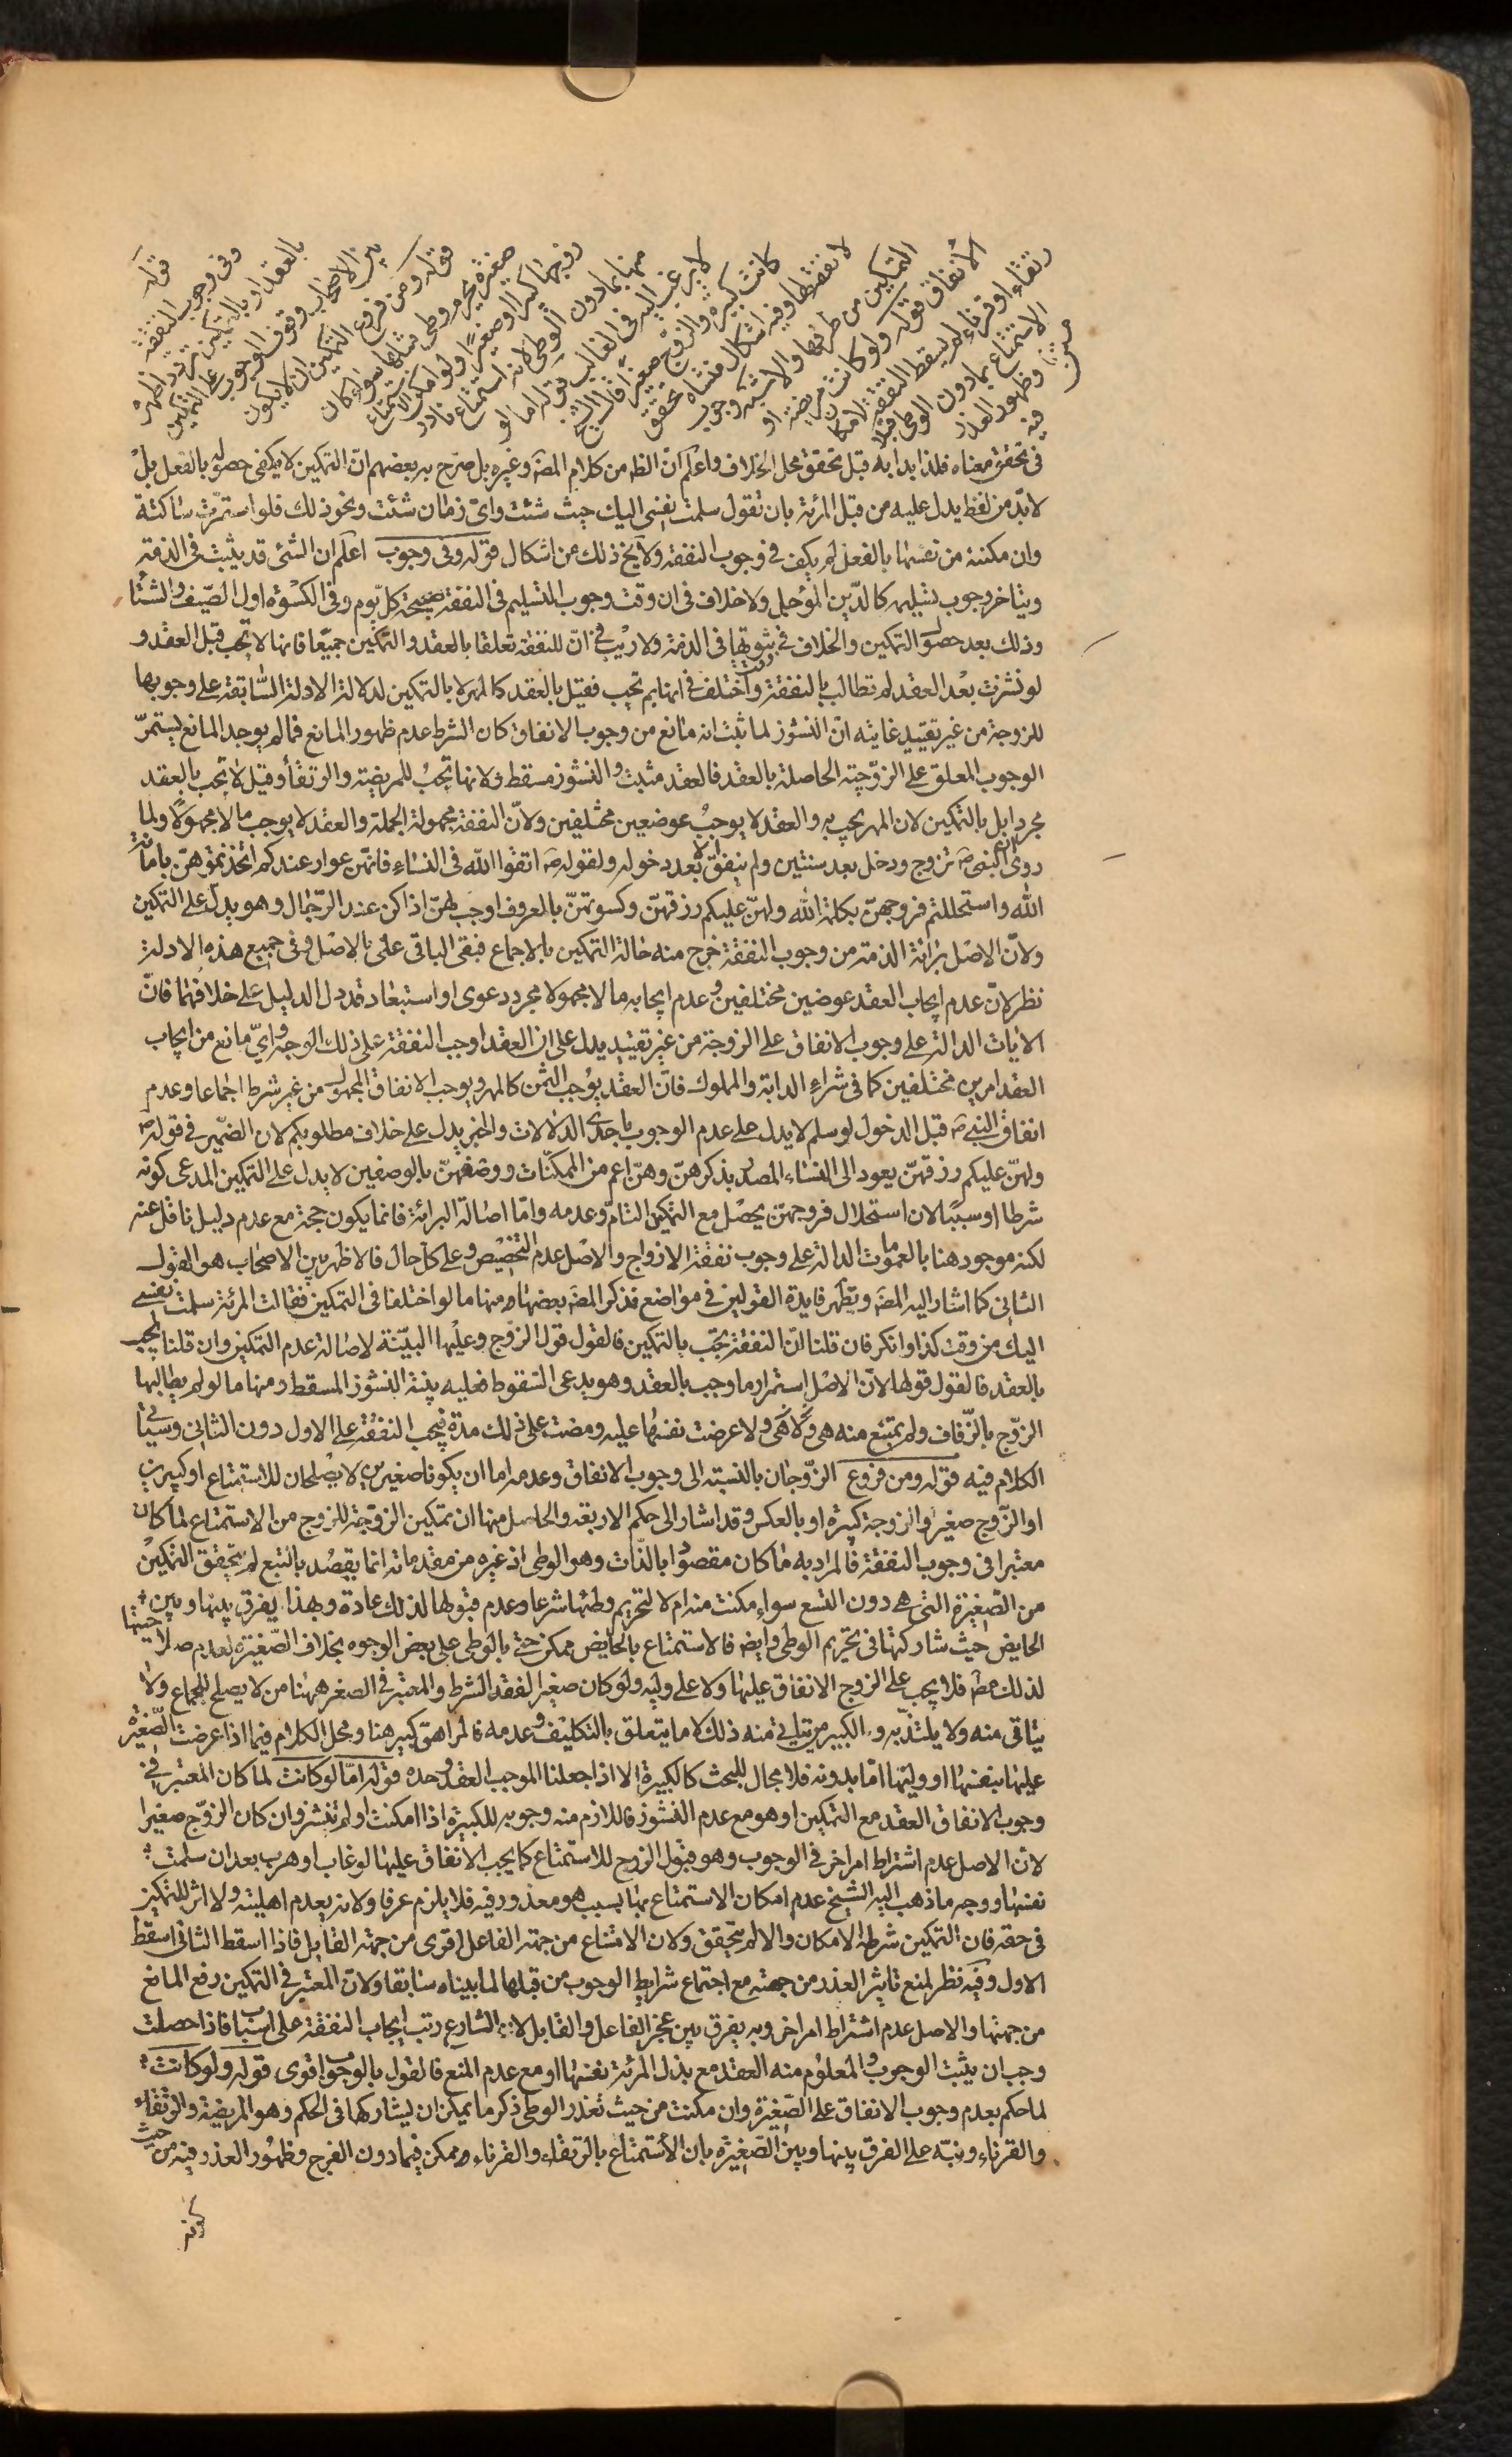 قوله
وفى وجوب النفقة
بالعقد او بالتمكين تردد اظهره
بين الاصحاب وقوف الوجوب على التمكين
قوله ومن فروع التمكين ان لا يكون
صغيرة يحرم وطى مثلها سواء كان
زوجها كبيرا او صغيرا ولو امكن الاستمتاع
منها بما دون الوطى لانه استمتاع نادر
لا يرغب اليه فى الغالب قوله اما لو
كانت كبيرة والزوج صغيرا قال الشيخ
لا نفقة لها وفيه اشكال منشاه تحقق
التمكين من طرفها والاشبه وجوب
الانفاق قوله ولو كانت مريضة او
رتقاء او قرناء لم يسقط النفقة لامكان
الاستمتاع بما دون الوطى قبلا
وظهور العذر
فيه
فى تحقق معناه فلذا بدا به قبل تحقق محل الخلاف واعلم ان الظ من كلام المصَ وغيره بل صرح به بعضهم انّ التمكين لا يكفى حصوله بالفعل بل
لا بدّ من لفظ يدل عليه من قبل المرئة بان تقول سلمت نفسى اليك حيث شئت واىّ زمان شئت ونحو ذلك فلو استمرّت ساكتة
وان مكنته من نفسها بالفعل لم يكف فى وجوب النفقة ولا يخ ذلك من اشكال قوله وفى وجوب اعلم ان الشئ قد يثبت فى الذمة
ويتاخر وجوب تسليمه كالدّين المؤجل ولا خلاف فى ان وقت وجوب التسليم فى النفقة صبيحة كل يوم وفى الكسوة اول الصّيف والشتا
وذلك بعد حصول التمكين والخلاف فى وقت ثبوتها فى الذمة ولا ريب فى انّ للنفقة تعلقا بالعقد والتمكين جميعًا فانها لا تجب قبل العقد و
لو نشزت بعد العقد لم تطالب بالنفقة واختلف فى انها بم تجب فقيل بالعقد كالمهر لا بالتمكين لدلالة الادلة السّابقة على وجوبها
للزوجة من غير تقييد غايته انّ النشوز لما ثبت انه مانع من وجوب الانفاق كان الشرط عدم ظهور المانع فما لم يوجد المانع يستمرّ
الوجوب المعلق على الزوّجيّة الحاصلة بالعقد فالعقد مثبت والنشوز مسقط ولانها تجب للمريضة والرتقاء وقيل لا تجب بالعقد
مجردا بل بالتمكين لان المهر يجب به والعقد لا يوجب عوضين مختلفين ولانّ النفقة مجهولة الجملة والعقد لا يوجب مالا مجهولًا ولما
روى ان النبى صَ تزوج ودخل بعد سنتين ولم ينفق الا بعد دخوله ولقوله صَ اتقوا اللّه فى النساء فانهنّ عوار عندكم اتخذتموهنّ بامانة
اللّه واستحللتم فروجهنّ بكلمة اللّه ولهنّ عليكم رزقهنّ وكسوتهنّ بالمعروف اوجب لهنّ اذا كن عند الرّجال وهو يدل على التمكين
ولانّ الاصل برائة الذمة من وجوب النفقة خرج منه حالة التمكين بالاجماع فبقى الباقى على الاصل وفى جميع هذه الادلة
نظر لانّ عدم ايجاب العقد عوضين مختلفين وعدم ايجابه مالا مجهولا مجرد دعوى او استبعاد قد دل الدليل على خلافهما فانّ
الايات الدالة على وجوب الانفاق على الزوجة من غير تقييد يدل على ان العقد اوجب النفقة على ذلك الوجه واىّ مانع من ايجاب
العقد امرين مختلفين كما فى شراء الدابة والمملوك فانّ العقد يوجب الثمن كالمهر ويوجب الانفاق المجهول من غير شرط اجماعا وعدم
انفاق النبى صَ قبل الدخول لو سلم لا يدل على عدم الوجوب باحدى الدلالات والخبر يدل على خلاف مطلوبكم لان الضّمير فى قوله صَ
ولهنّ عليكم رزقهنّ يعود الى النساء المصدر بذكرهنّ وهنّ اعم من الممكنّات ووصفهنّ بالوصفين لا يدل على التمكين المدعى كونه
شرطا او سببًا لان استحلال فروجهنّ يحصل مع التمكين التامّ وعدمه وامّا اصالة البرائة فانما يكون حجة مع عدم دليل ناقل عنه
لكنه موجود هنا بالعمومات الدالة على وجوب نفقة الازواج والاصل عدم التخصيص وعلى كل حال فالاظهر بين الاصحاب هو القول
الثانى كما اشار اليه المصَ وتظهر فايدة القولين فى مواضع فذكر المصَ بعضها ومنها ما لو اختلفا فى التمكين فقالت المرئة سلمت نفسى
اليك من وقت كذا وانكر فان قلنا انّ النفقة تجب بالتمكين فالقول قول الزوج وعليها البيّنة لاصالة عدم التمكين وان قلنا تجب
بالعقد فالقول قولها لانّ الاصل استمرار ما وجب بالعقد وهو يدعى السّقوط فعليه بيّنة النشوز المسقط ومنها ما لو لم يطالبها
الزوّج بالزّفاف ولم تمتنع منه هى ولا هى ولا عرضت نفسها عليه ومضت على ذلك مدة فيجب النفقة على الاول دون الثانى وسياتى
الكلام فيه قوله ومن فروع الزّوجان بالنسبة الى وجوب الانفاق وعدمه اما ان يكونا صغيرين لا يصلحان للاستمتاع او كبيرين
او الزّوج صغيرا والزوجة كبيرة او بالعكس وقد اشار الى حكم الاربعة والحاصل منها ان تمكين الزوّجة للزوج من الاستمتاع لما كان
معتبرا فى وجوب النفقة فالمراد به ما كان مقصودًا بالذّات وهو الوطى اذ غيره من مقدماته انما يقصد بالتبع لم يتحقق التمكين
من الصّغيرة التى هى دون التسع سواء مكنت منه ام لا لتحريم وطئها شرعا وعدم قبولها لذلك عادة وبهذا يفرق بينها وبين
الحايض حيث شاركتها فى تحريم الوطى وايضه فالاستمتاع بالحايض ممكن حتى بالوطى على بعض الوجوه بخلاف الصّغيرة لعدم صلاحيتها
لذلك مطَ فلا يجب على الزوج الانفاق عليها ولا على وليه ولو كان صغيرا لفقد الشرط والمعتبر فى الصغر ههنا من لا يصلح للجماع ولا
يتاتى منه ولا يلتذّ به والكبير من يتاتى منه ذلك لا ما يتعلق بالتكليف وعدمه فالمراهق كبير هنا ومحل الكلام فيما اذا عرضت الصّغيرة
عليها بنفسها او وليّها امّا بدونه فلا مجال للبحث كالكبيرة الا اذا جعلنا الموجب العقد وحده قوله امّا لو كانت لما كان المعتبر فى
وجوب الانفاق العقد مع التمكين او هو مع عدم النشوز فاللازم منه وجوبه للكبيرة اذا امكنت او لم تنشز وان كان الزوّج صغيرا
لانّ الاصل عدم اشتراط امر اخر فى الوجوب وهو قبول الزوج للاستمتاع كما يجب الانفاق عليها لو غاب او هرب بعد ان سلمت
نفسها ووجه ما ذهب اليه الشيخ عدم امكان الاستمتاع بها بسبب هو معذور فيه فلا يلزم عرفا ولانه بعدم اهليته ولا اثر للتمكين
فى حقه فان التمكين شرطه الامكان والا لم يتحقق ولان الامتناع من جهة الفاعل اقوى من جهة القابل فاذا اسقط الثانى اسقط
الاول وفيه نظر لمنع تاثير العذر من جهته مع اجتماع شرايط الوجوب من قبلها لما بيناه سابقا ولانّ المعتبر فى التمكين رفع المانع
من جهتها والاصل عدم اشتراط امر اخر وبه يفرق بين عجز الفاعل والقابل لانّ الشارع رتب ايجاب النفقة على اسباب فاذا حصلت
وجب ان يثبت الوجوب والمعلوم منه العقد مع بذل المرئة نفسها او مع عدم المنع فالقول بالوجوب اقوى قوله ولو كانت
لما حكم بعدم وجوب الانفاق على الصّغيرة وان مكنت من حيث تعذر الوطى ذكر ما يمكن ان يشاركها فى الحكم وهو المريضة والرتقاء
والقرناء ونبّه على الفرق بينها وبين الصّغيرة بان الاستمتاع بالرتقاء والقرناء ممكن فيما دون الفرج وظهور العذر فيه من حيث
كونه